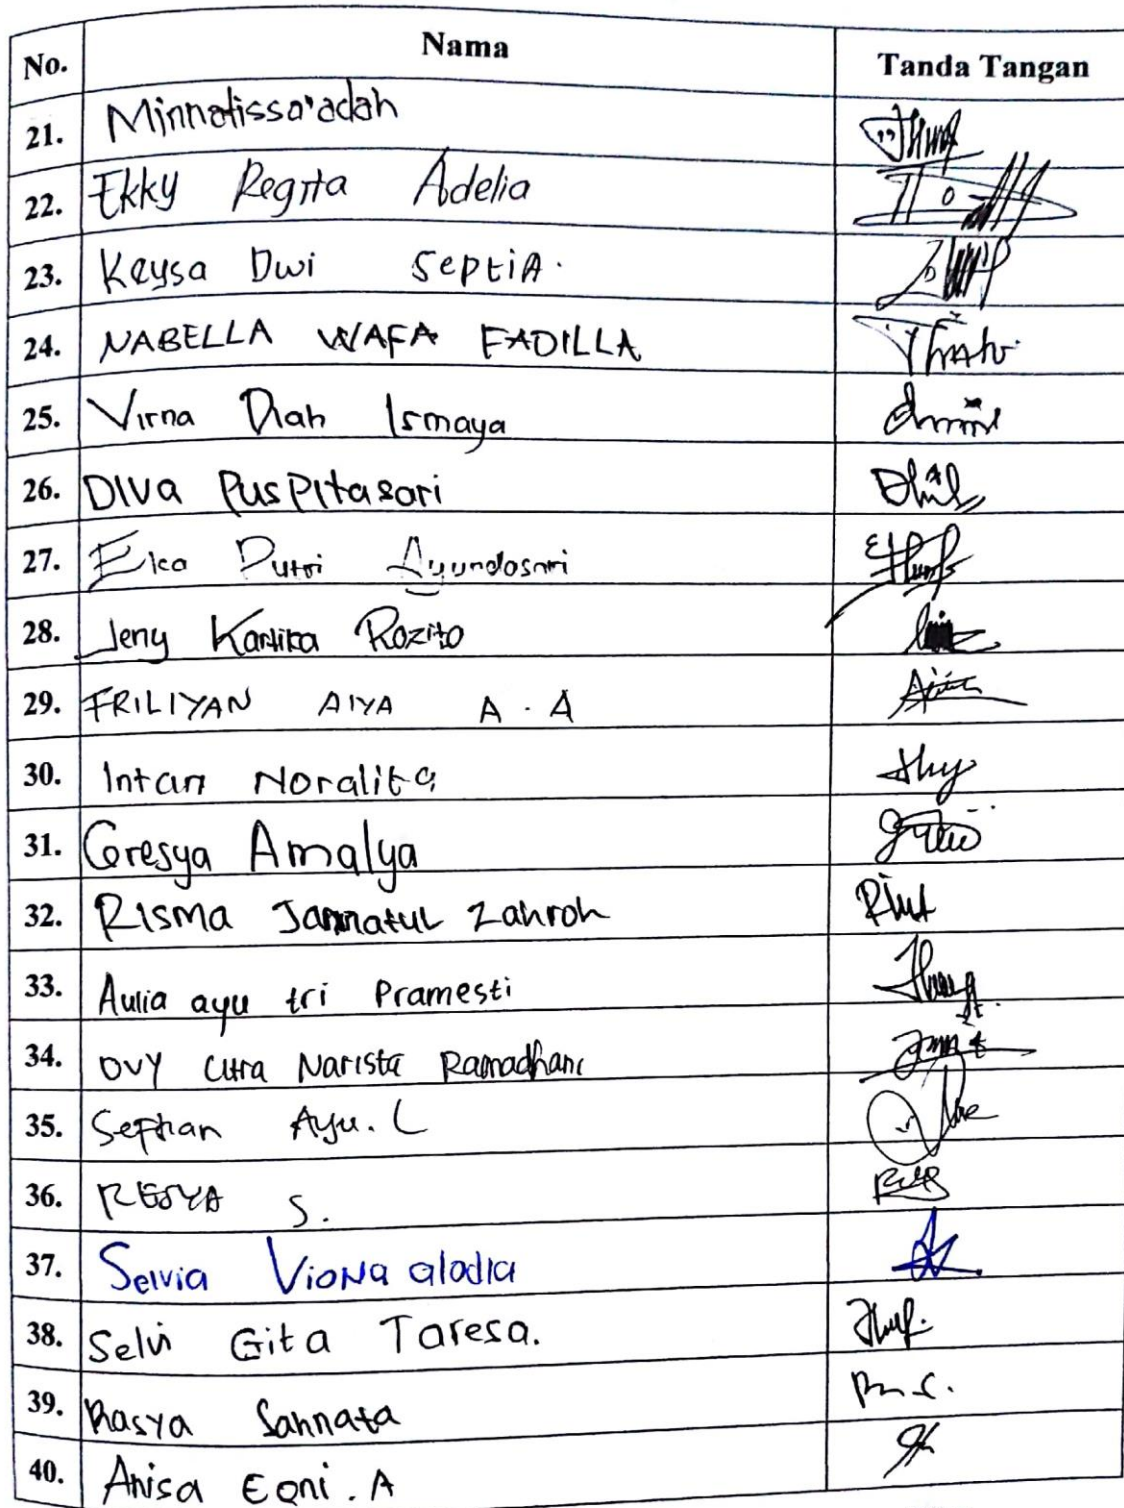 No. Nama Tanda Tangan
21. Minnatissa'adah
22. Ekky Regita Adelia
23. Keysa Dwi SeptiA.
24. NABELLA WAFA FADILLA
25. Virna Diah Ismaya
26. DIVa PusPitasari
27. Elca Putri Ayundasari
28. Jeny Kartika Rozito
29. FRILIYAN AIYA A. A
30. Intan Noralita
31. Gresya Amalya
32. RISMA Jannatul Zahroh
33. Aulia ayu tri Pramesti
34. OVY Citra Narista Ramadhani
35. Septian Ayu. L
36. RESYA S.
37. Selvia VioNa alodia
38. Selvi Gita Taresa.
39. Rasya Sannata
40. Anisa Eqni. A